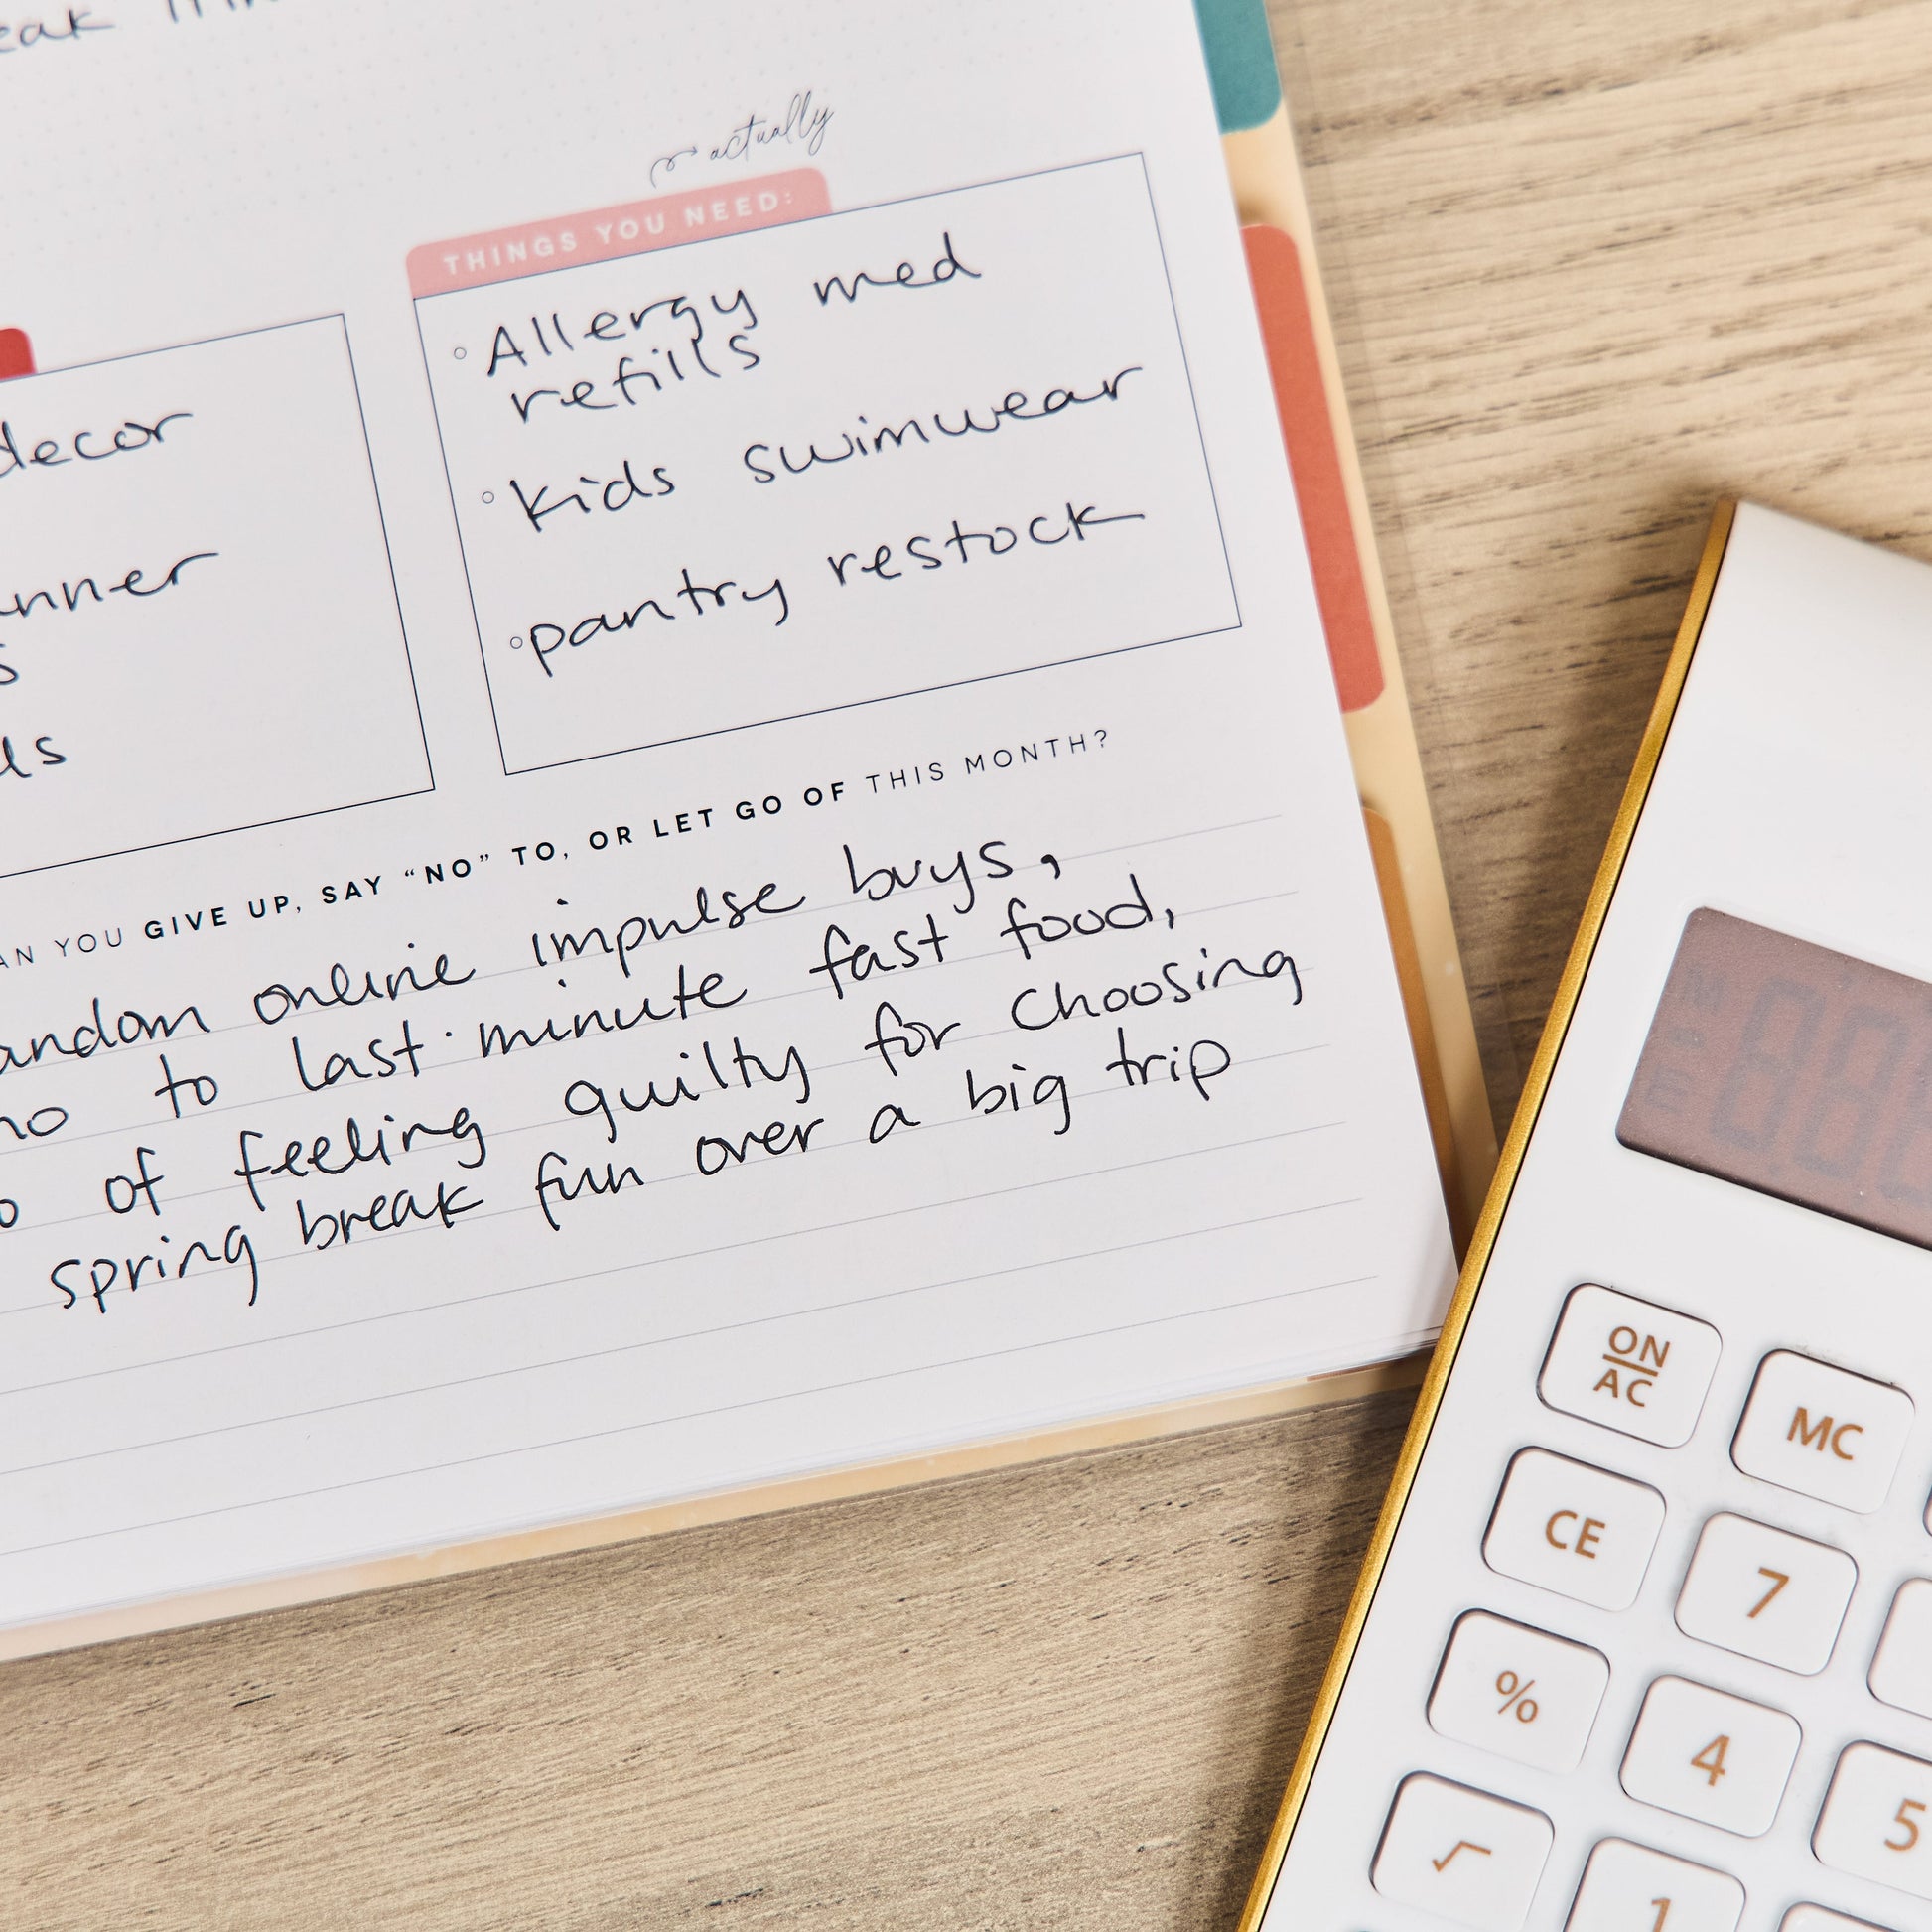 actually
THINGS YOU NEED:
Allergy med
refills
kids swimwear
pantry restock
decor
YOU GIVE UP, SAY “NO” TO, OR LET GO OF THIS MONTH?
online impulse buys,
no to last-minute fast food,
of feeling guilty for choosing
spring break fun over a big trip
ON
AC
MC
CE
7
%
4
5
√
1